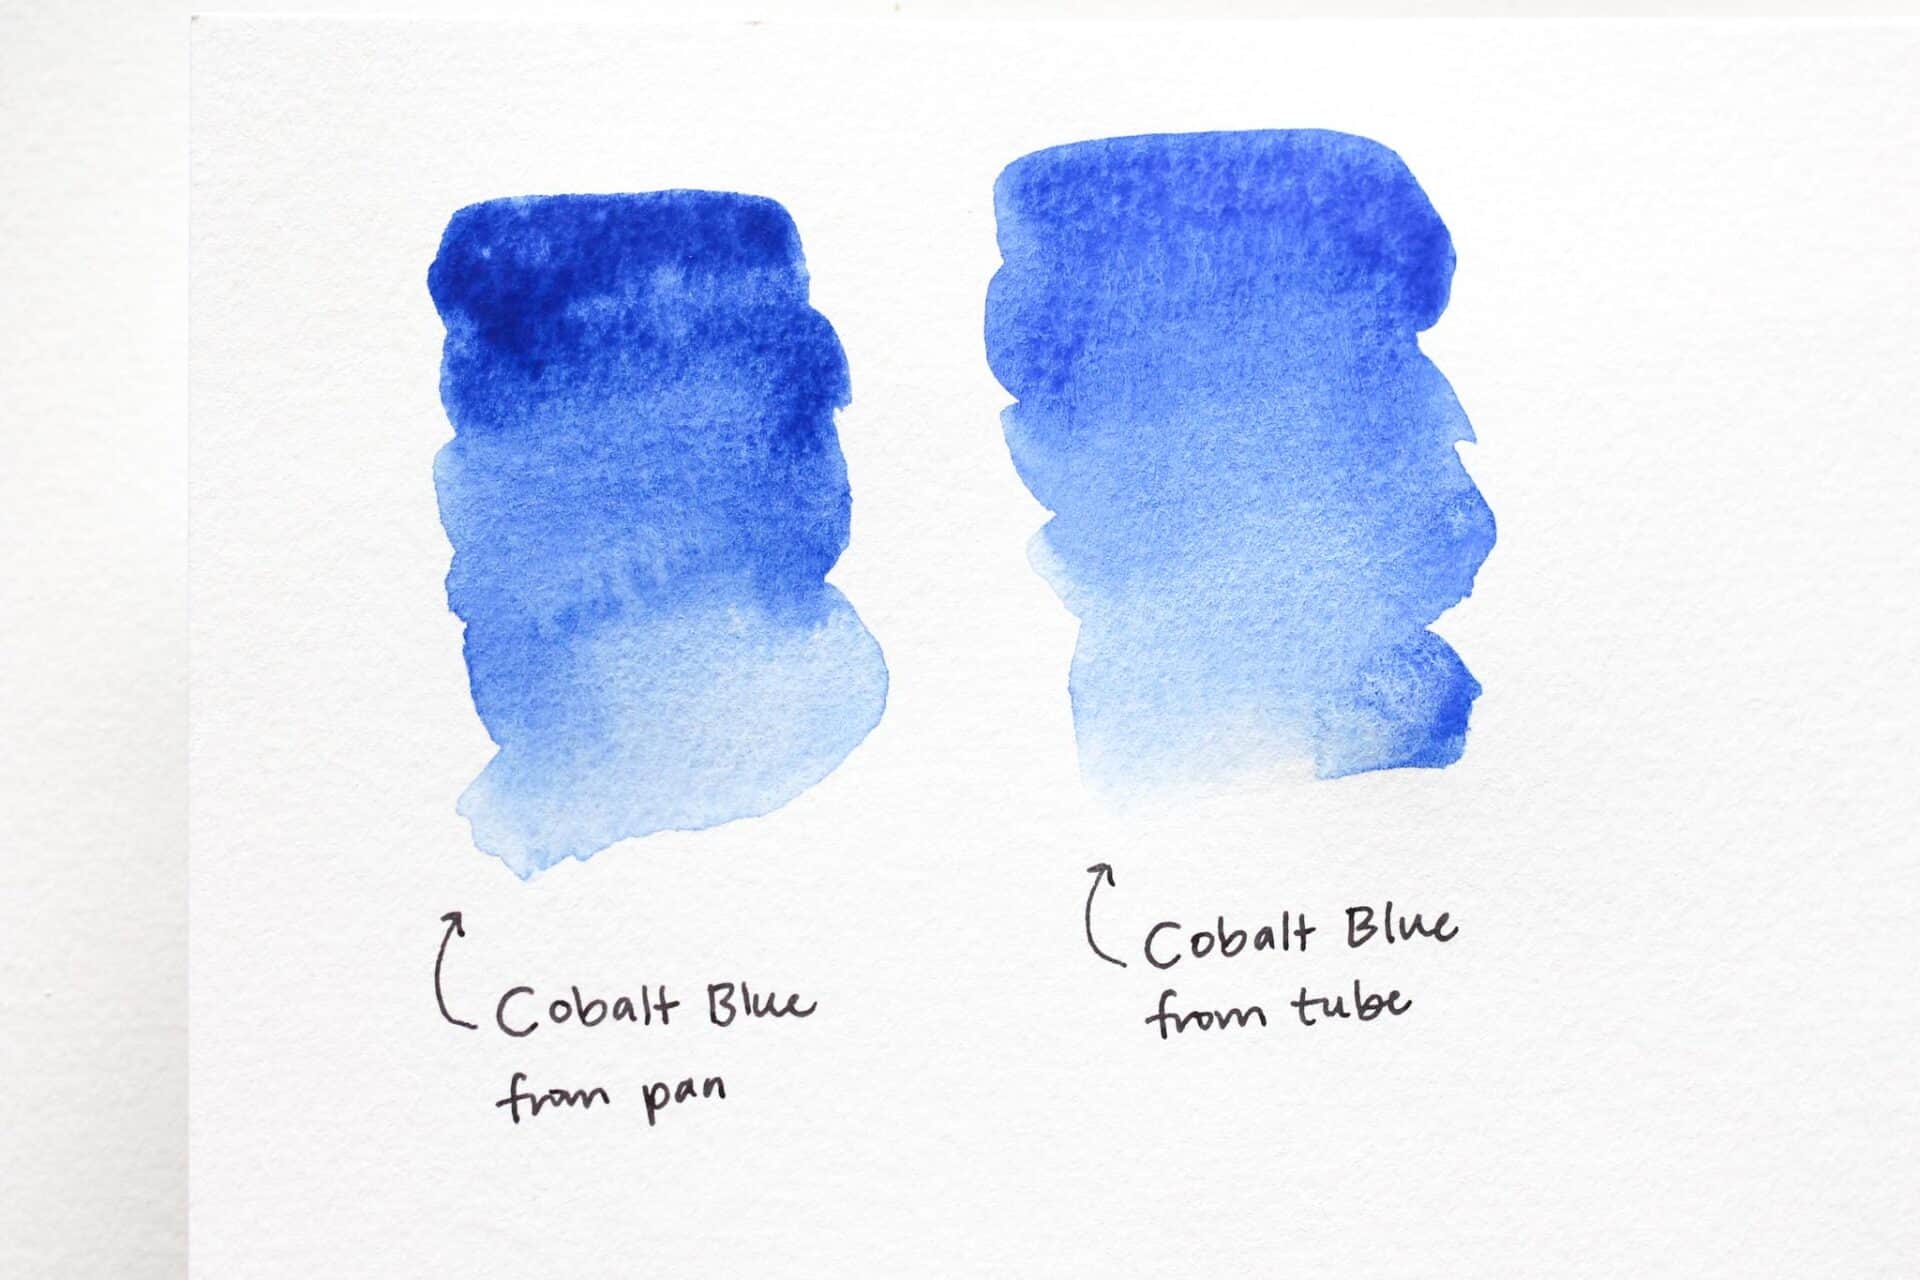 Cobalt Blue
from pan
Cobalt Blue
from tube